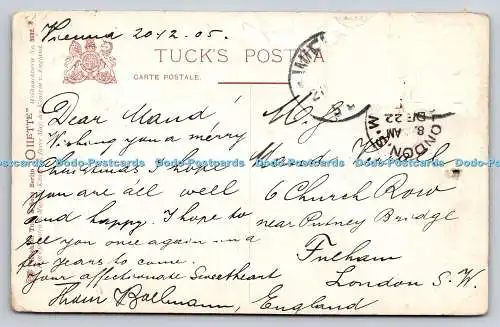 Vienna 20.12.05.
TUCK'S POST
CARTE POSTALE.
Dear Maud!
Wishing you a merry
Christmas I hope
you are all well
and happy. I hope to
see you once again in a
few years to come.
Your affectionate Sweetheart
Miss
6 Church Row
near Putney Bridge
Fulham
London S.W.
England
LONDON S.W.
8. AM
DE 22
OILETTE"
Dodo-Postcards Dodo-Postcards Dodo-Postcards Dodo-Postcards Dodo-Postcards